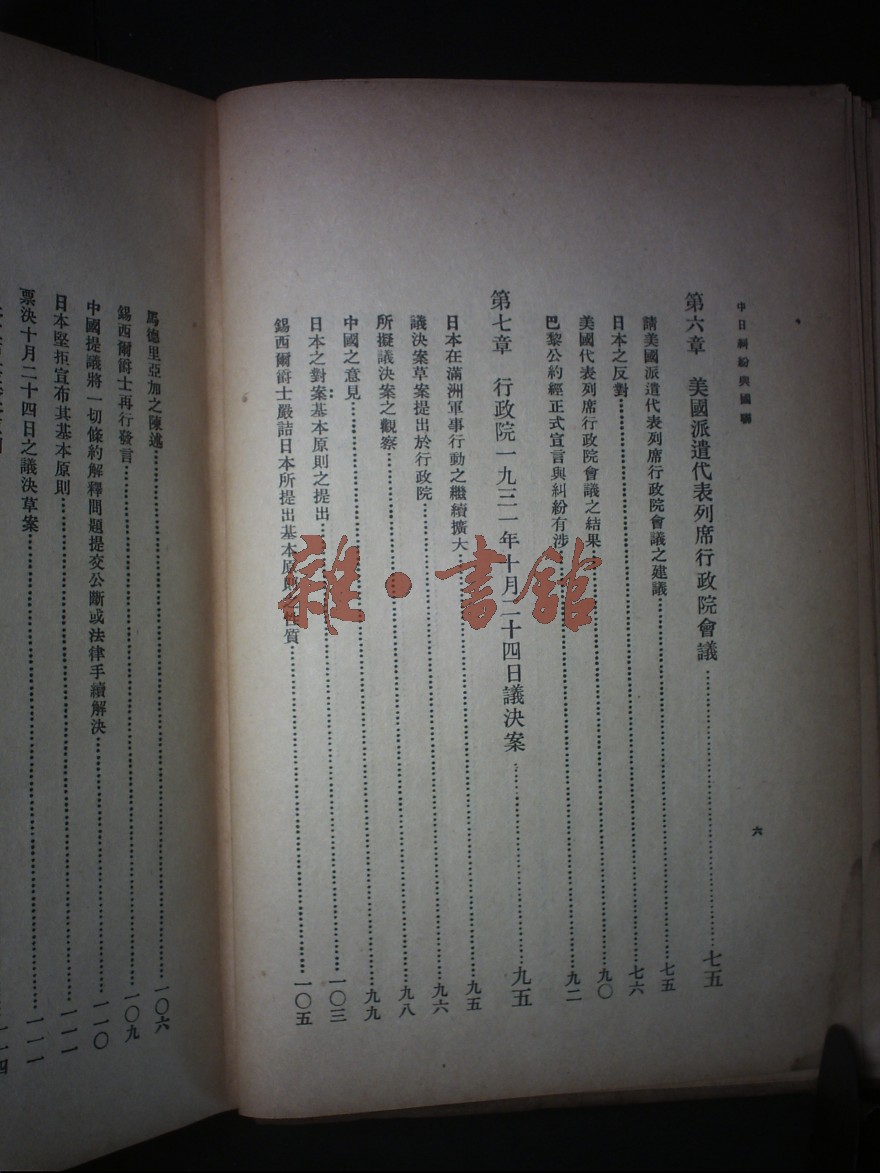 中日糾紛與國聯
六
第六章　美國派遣代表列席行政院會議……七五
請美國派遣代表列席行政院會議之建議……七五
日本之反對……七六
美國代表列席行政院會議之結果……九〇
巴黎公約經正式宣言與糾紛有涉……九二
第七章　行政院一九三一年十月二十四日議決案……九五
日本在滿洲軍事行動之繼續擴大……九五
議決案草案提出於行政院……九六
所擬議決案之觀察……九八
中國之意見……九九
日本之對案基本原則之提出……一〇三
錫西爾爵士嚴詰日本所提出基本原則之性質……一〇五
馬德里亞加之陳述……一〇六
錫西爾爵士再行發言……一〇九
中國提議將一切條約解釋問題提交公斷或法律手續解決……一一〇
日本堅拒宣布其基本原則……一一一
票決十月二十四日之議決草案……一一一
一一四
雜·書館